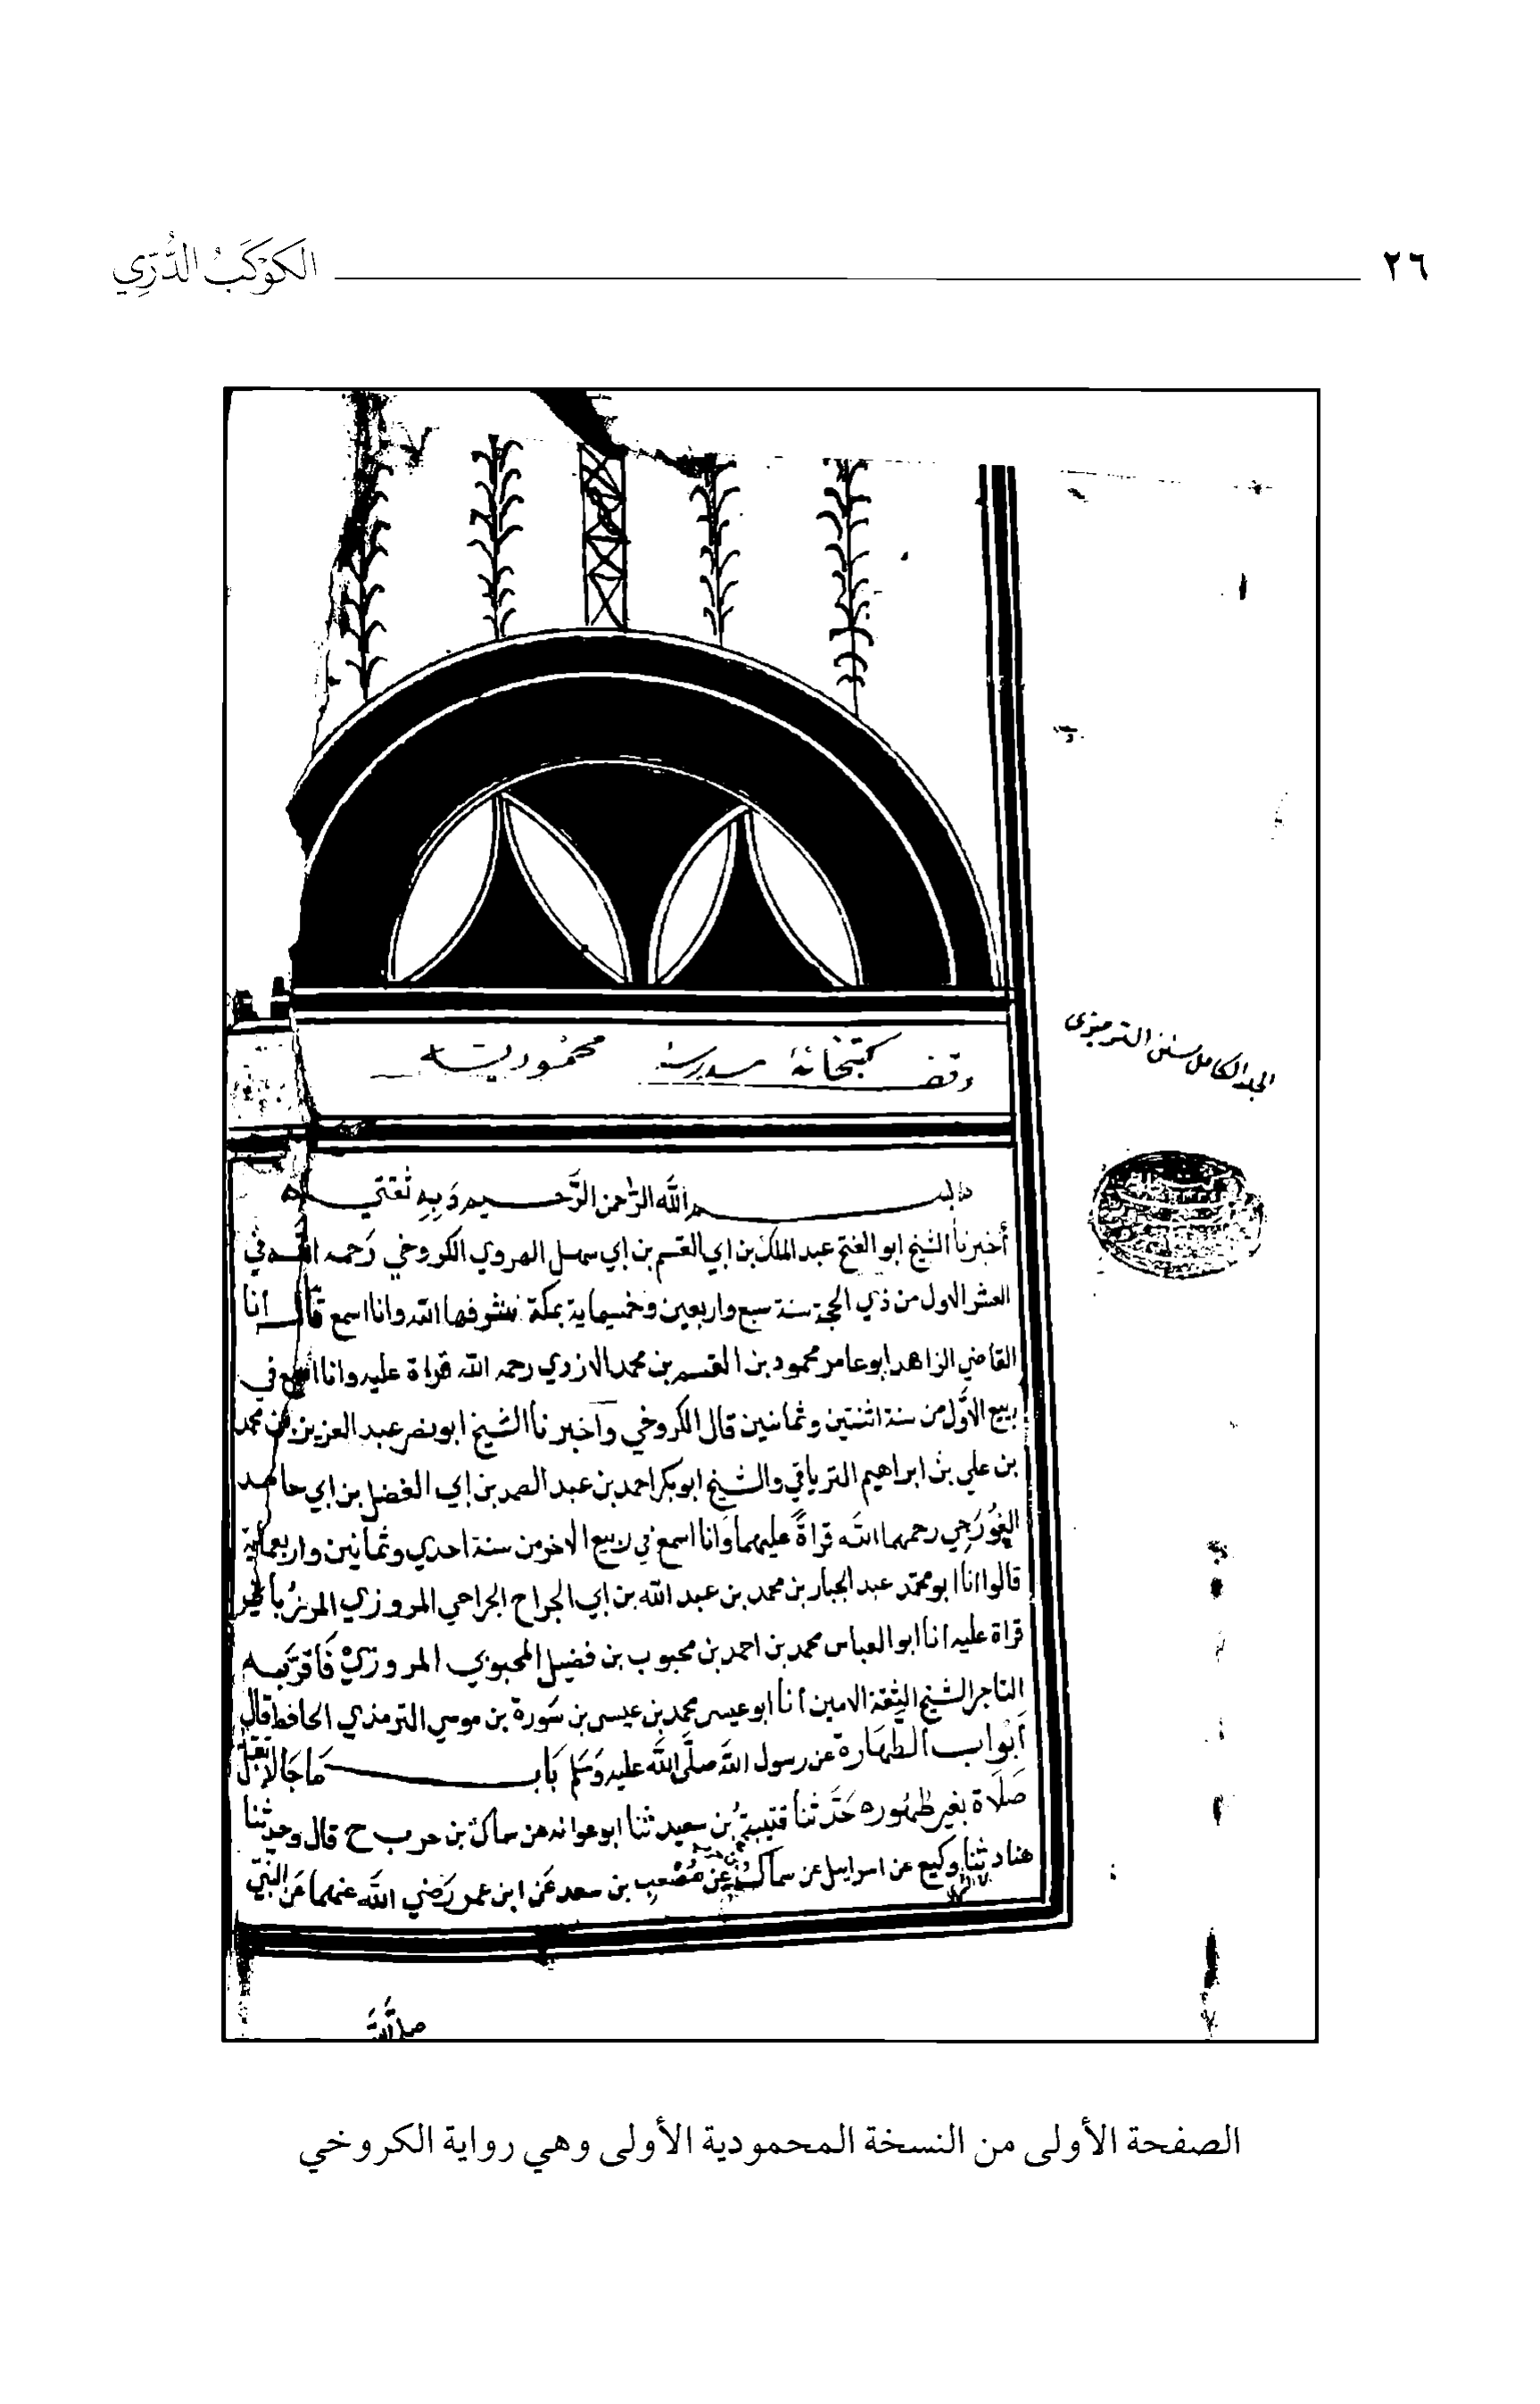 ٢٦
الكَوْكَبُ الدُّرِّي
وقف كتبخانهٔ مدرسهٔ محموديه
الجلد الكامل سنن الترميزى
بسم الله الرحمن الرَّحيم وَبِهِ ثقتي
أخبرنا الشيخ ابو الفتح عبد الملك بن ابي القسم بن ابي سهل الهروي الكروخي رَحمه الله في
العشر الاول من ذي الحجة سنة سبع واربعين وخمسماية بمكة شرفها الله وانا اسمع قال انا
القاضي الزاهد ابو عامر محمود بن القسم بن محمد الازدي رحمه الله قراة عليه وانا اسمع في
ربيع الأول من سنة اثنتين وثمانين قال الكروخي وأخبرنا الشيخ ابو نصر عبد العزيز بن محمد
بن علي بن ابراهيم الترياقي والشيخ ابو بكر احمد بن عبد الصمد بن ابي الفضل بن ابي حامد
الغُوْرَجي رحمهما الله قراةً عليهما وَانا اسمع في ربيع الاخر من سنة احدي وثمانين واربعماية
قالوا انا ابو محمّد عبد الجبار بن محمد بن عبد الله بن ابي الجراح الجراحي المروزي المرزباني
قراة عليه انا ابو العباس محمد بن احمد بن محبوب بن فضيل المحبوبي المروزي فَأقرَّ به
التاجر الشيخ الثقة الامين انا ابو عيسى محمد بن عيسى بن سَورة بن موسي الترمذي الحافظ قال
أَبْوَاب الطَّهَارة عن رسول الله صلَّى اللَّه عليه وَسَلم بَاب مَا جَا لا تقبل
صَلَاة بغير طُهُور حَدَّثنا قتيبة بُن سعيد ثنا ابو عوانه عن سماك بن حرب ح قال وحدثنا
هناد ثنا وكيع عن اسراييل عن سماك عن مُصْعب بن سعد عَن ابن عمر رَضي اللَّه عنهما عَن النبي
صلى الله
الصفحة الأولى من النسخة المحمودية الأولى وهي رواية الكروخي